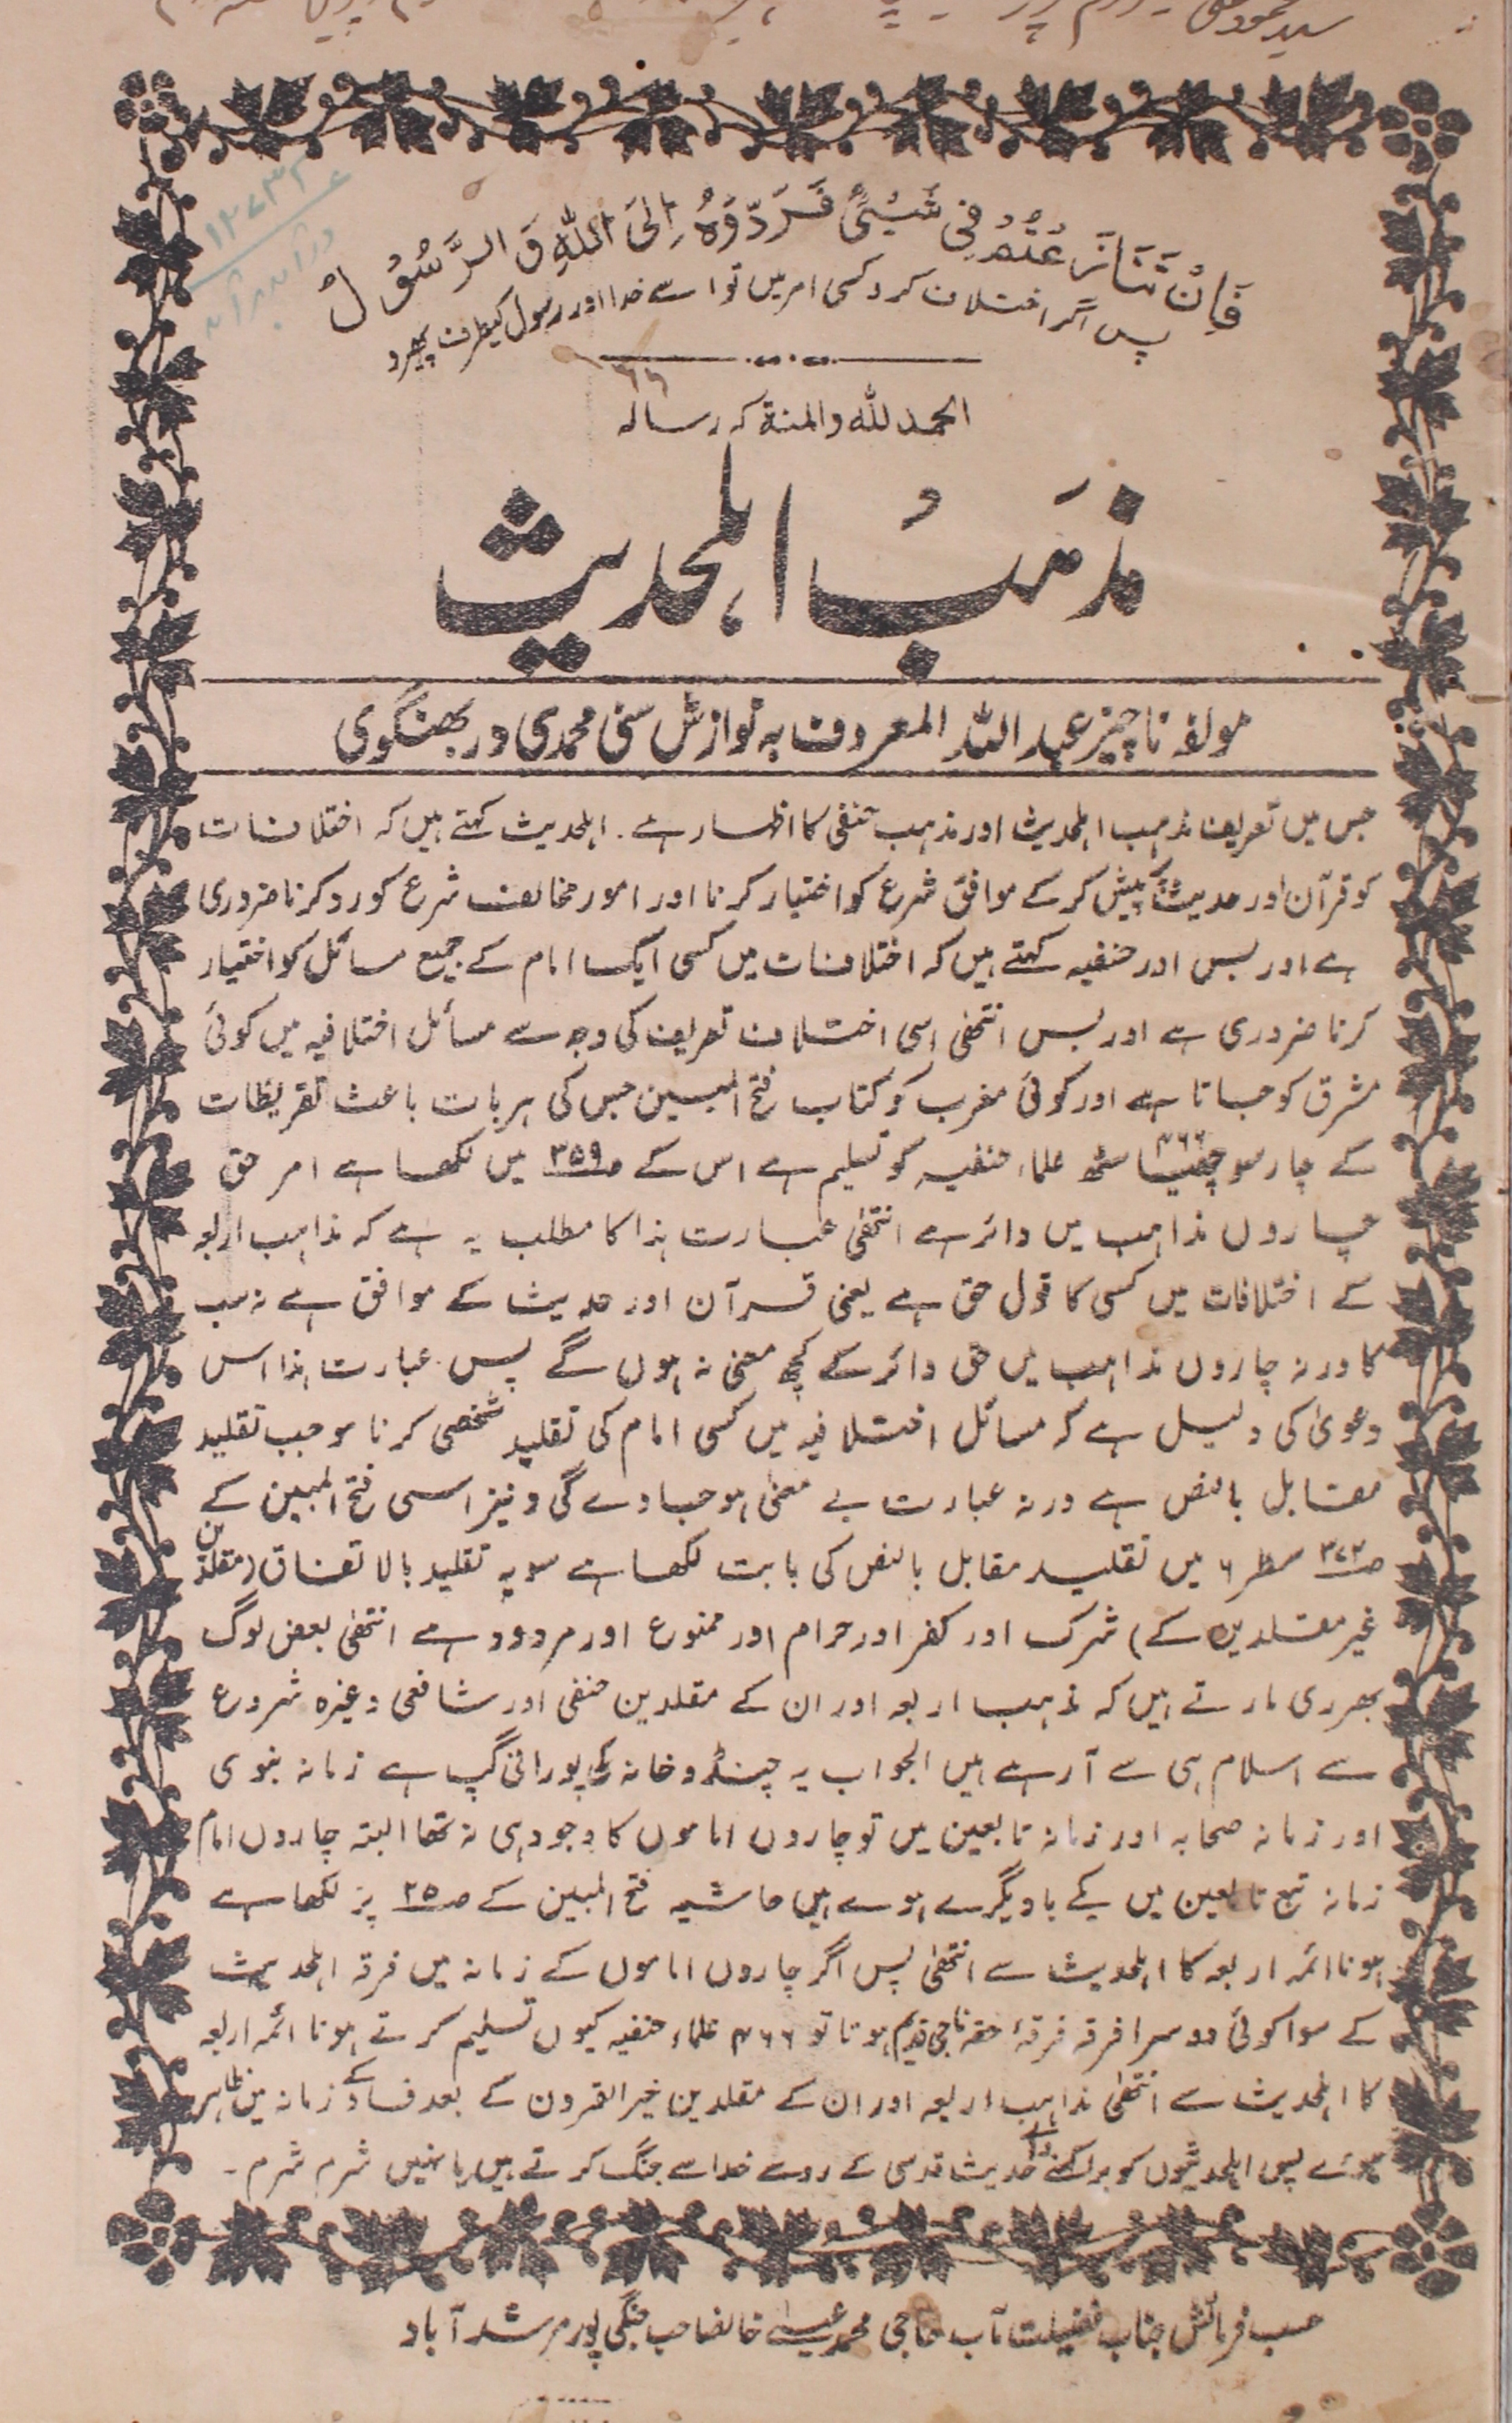 فَاِنْ تَنَازَعْتُمْ فِی شَیْئًی فَرَدُّوْهُ اِلیَ اللّٰهِ وَ الرَّسُوْلْ
پس اگر اختلاف کرو کسی امر میں تو اسے خدا اور رسول کیطرف پھیرو
الحمد للّٰه والمنة کہ رسالہ
مذہَبُ اہلحدیث
مولفہ ناچیز عبد اللہ المعروف بہ نوازش سنی محمدی دربھنگوی
جس میں تعریف مذہب اہلحدیث اور مذہب حنفی کا اظہار ہے۔ اہلحدیث کہتے ہیں کہ اختلافات
کو قرآن اور حدیث پر پیش کر کے موافق شرع کو اختیار کرنا اور امور مخالف شرع کو رد کرنا ضروری
ہے اور بس اور حنفیہ کہتے ہیں کہ اختلافات میں کسی ایک امام کے جمیع مسائل کو اختیار
کرنا ضروری ہے اور بس انتھٰی اسی اختلاف تعریف کی وجہ سے مسائل اختلافیہ میں کوئی
مشرق کو جاتا ہے اور کوئی مغرب کو کتاب فتح المبین جس کی ہر بات باعث تقریظات
کے چار سو چھیاسٹھ ۴۶۶ علماء حنفیہ کو تسلیم ہے اس کے صـ۳۵۹ میں لکھا ہے امر حق
چاروں مذاہب میں دائر ہے انتھٰی عبارت ہذا کا مطلب یہ ہے کہ مذاہب اربعہ
کے اختلافات میں کسی کا قول حق ہے یعنی قرآن اور حدیث کے موافق ہے نہ سب
کا ورنہ چاروں مذاہب میں حق دائر کے کچھ معنی نہ ہوں گے پس عبارت ہذا اس
دعویٰ کی دلیل ہے کہ مسائل اختلافیہ میں کسی امام کی تقلید شخصی کرنا موجب تقلید
مقابل بالنص ہے ورنہ عبارت بے معنی ہو جاوے گی و نیز اسی فتح المبین کے
صـ۳۷۲ سطر ۶ میں تقلید مقابل بالنص کی بابت لکھا ہے سو یہ تقلید بالاتفاق (مقلدین
غیر مقلدین کے) شرک اور کفر اور حرام اور ممنوع اور مردود ہے انتھٰی بعض لوگ
بھرری مارتے ہیں کہ مذہب اربعہ اور ان کے مقلدین حنفی اور شافعی وغیرہ شروع
سے اسلام ہی سے آ رہے ہیں الجواب یہ چنڈو خانہ کی پورانی گپ ہے زمانہ نبوی
اور زمانہ صحابہ اور زمانہ تابعین میں تو چاروں اماموں کا وجود ہی نہ تھا البتہ چاروں امام
زمانہ تبع تابعین میں یکے بادیگرے ہوے ہیں حاشیہ فتح المبین کے صـ۲۵ پر لکھا ہے
ہونا ائمہ اربعہ کا اہلحدیث سے انتھٰی پس اگر چاروں اماموں کے زمانہ میں فرقہ اہلحدیث
کے سوا کوئی دوسرا فرقہ فرقۂ حقہ ناجی قدیم ہوتا تو ۴۶۶ علماء حنفیہ کیوں تسلیم کرتے ہونا ائمہ اربعہ
کا اہلحدیث سے انتھٰی مذاہب اربعہ اور ان کے مقلدین خیر القرون کے بعد فساد کے زمانہ میں ظاہر
ہوئے پس اہلحدیثوں کو برا کہنے والے حدیث قدسی کے روسے خدا سے جنگ کرتے ہیں یا نہیں شرم شرم۔
حسب فرمائش جناب فضیلت مآب حاجی محمد عیسیٰ خانصاحب جنگی پور مرشد آباد